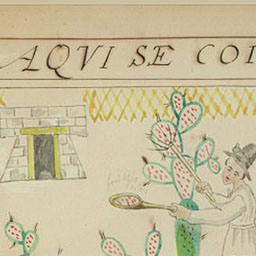 AQVI SE COI